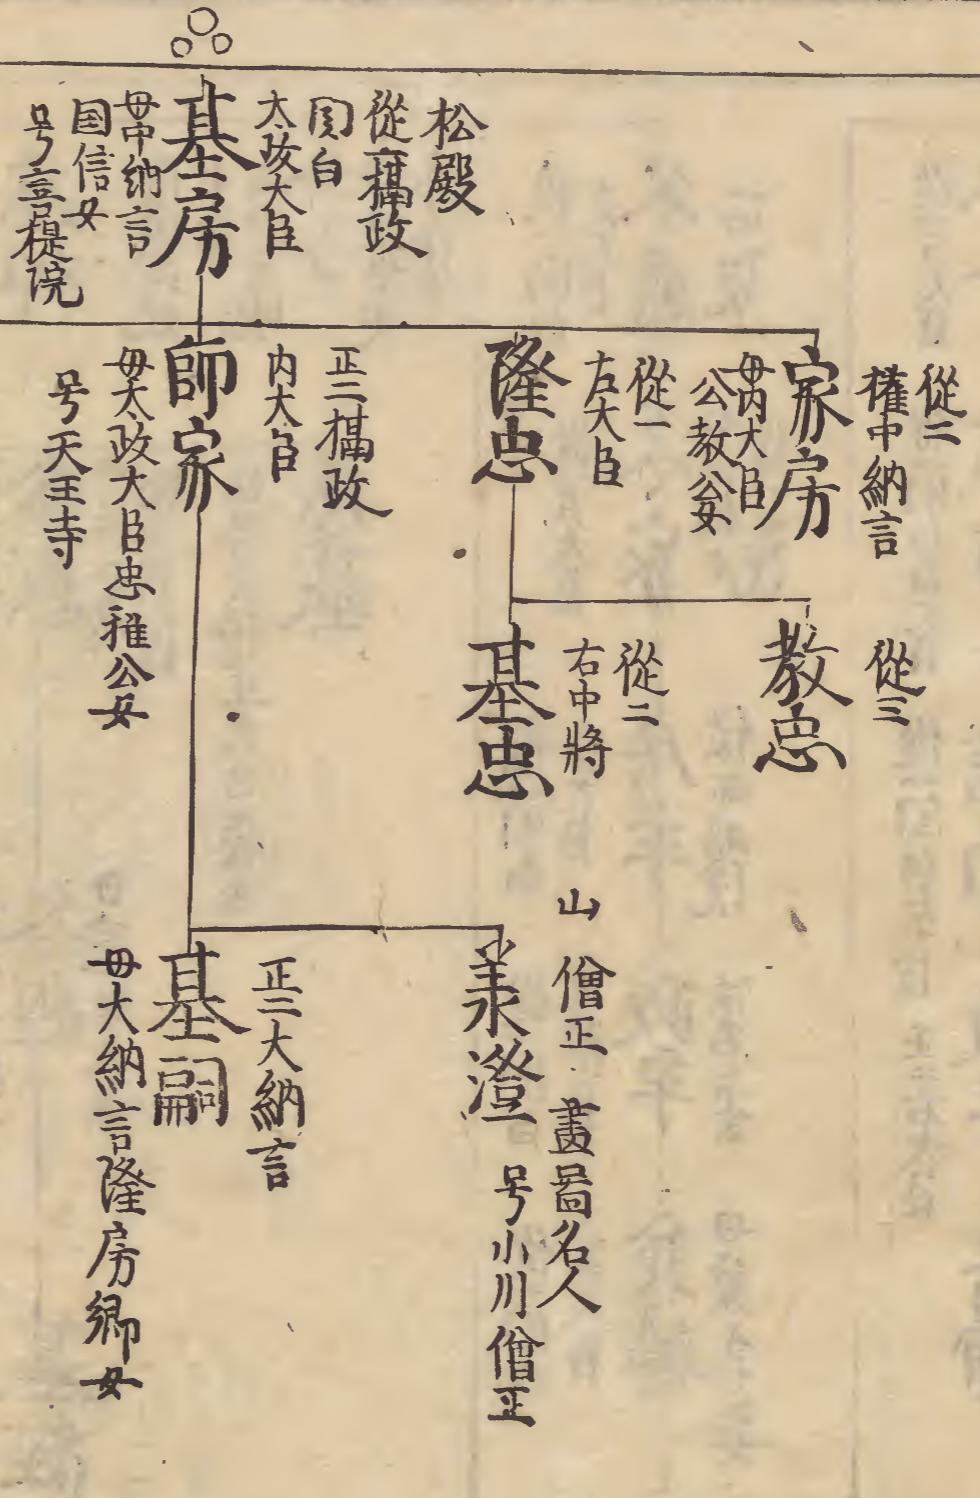 松殿
從一攝政
関白
太政大臣
基房
母中納言
国信女
号菩提院
從二
權中納言
家房
母内大臣
公教公女
從一
左大臣
隆忠
正二攝政
内大臣
師家
母太政大臣忠雅公女
号天王寺
從三
教忠
從二
右中將
基忠
山 僧正 畫啚名人
号小川僧正
承澄
正二大納言
基嗣
母大納言隆房卿女